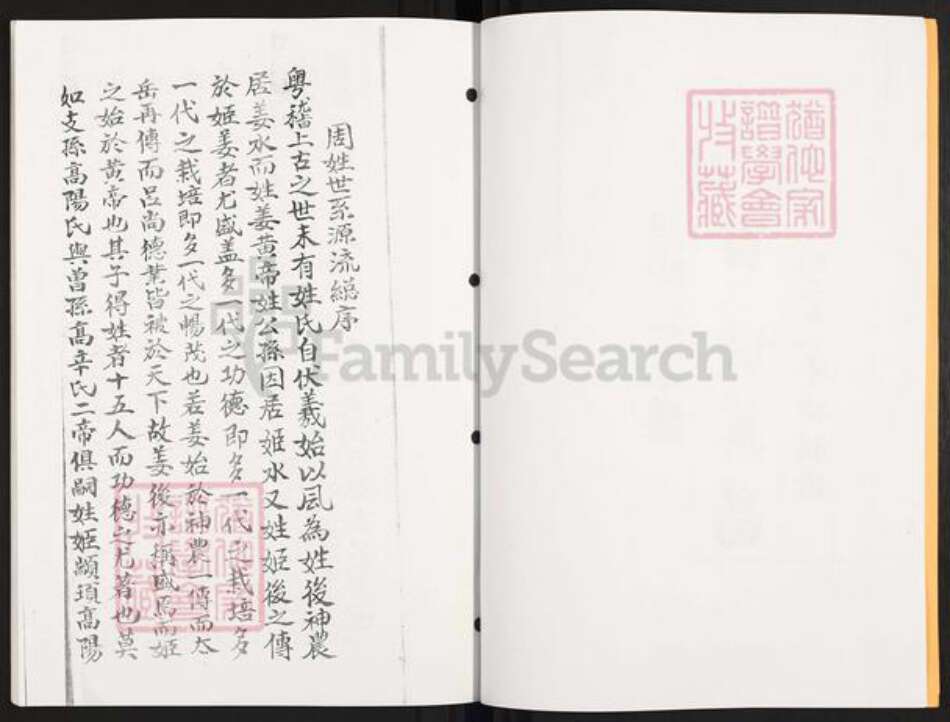 猶他家
譜學會
收藏
周姓世系源流總序
粵稽上古之世未有姓氏自伏羲始以風為姓後神農
居姜水而姓姜黃帝姓公孫因居姬水又姓姬後之傳
於姬姜者尤盛盖多一代之功德即多一代之栽培多
一代之栽培即多一代之暢茂也若姜始於神農一傳而太
岳再傳而呂尚德業皆被於天下故姜後亦稱盛焉而姬
之始於黃帝也其子得姓者十五人而功德之尤著也莫
如支孫高陽氏與曾孫高辛氏二帝俱嗣姓姬顓頊高陽
猶他家
譜學會
收藏
FamilySearch